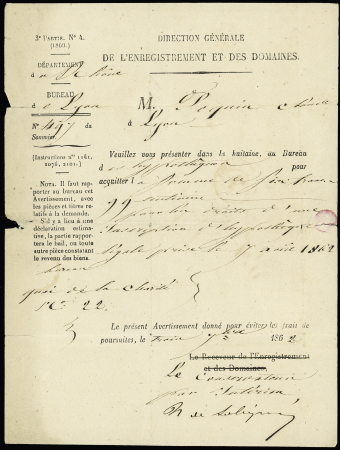 3e Partie. No 4.
(1860.)
DÉPARTEMENT
du Rhône
BUREAU
de Lyon
No 497 du
Sommier
(Instructions nos 1161,
2076, 2101.)
NOTA. Il faut rap-
porter au bureau cet
Avertissement, avec
les pièces et titres re-
latifs à la demande.
S'il y a lieu à une
déclaration estima-
tive, la partie rappor-
tera le bail, ou toute
autre pièce constatant
le revenu des biens.
DIRECTION GÉNÉRALE
DE L'ENREGISTREMENT ET DES DOMAINES.
M. Poquin
à Lyon
Veuillez vous présenter dans la huitaine, au Bureau
d hypothèques pour
acquitter la somme de six francs
99 centimes
pour les droits d'une
Inscription d'hypothèque
légale prise le 7 août 1862
bureau
quai de la Charité
No 22.
Le présent Avertissement donné pour éviter les frais de
poursuites, le trois 7bre 1862
Le Receveur de l'Enregistrement
et des Domaines.
Le Conservateur
par Intérim,